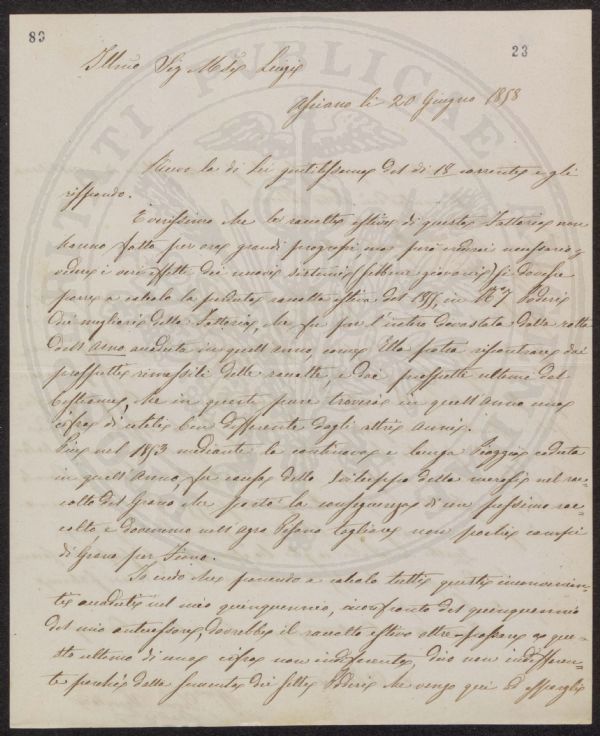 83
23
Illmo Sig M Luigi
Asciano li 20 Giugno 1858
Ricevo la di Lei gentilissima del di 18 corrente e gli
rispondo.
È verissimo che le raccolte estive di questa Fattoria non
hanno fatto per ora grandi progressi, ma però crederei necessario
vedere i veri effetti dei nuovi sistemi (sebbene giovani) si dovesse
porre a calcolo la perduta raccolta estiva del 1855 in N° 7 Poderi
dei migliori della Fattoria, che fu per l'intero devastata dalla rotta
dell'Arno accaduta in quell'anno, come Ella potrà riscontrare dai
prospetti rimessili delle raccolte, e dai prospetti ultimi del
bestiame, che in questi pure troverà in quell'anno una
cifra di utili ben differente dagli altri anni.
Più nel 1853 mediante la continova e lunga Pioggia caduta
in quell'Anno, fu causa dello sviluppo della nel rac=
colto del Grano che portò la conseguenza di un pessimo rac=
colto, e dovemmo nell'agro Pisano tagliare non pochi campi
di Grano per Fieno.
Io credo che ponendo a calcolo tutti questi inconvenien=
ti accaduti nel mio quinquennio, in confronto del quinquennio
del mio antecessore, dovrebbe il raccolto estivo oltre-passare que=
sto ultimo di una cifra non indifferente, dico non indifferen=
te perchè dalla sementa dei sette Poderi che vengo qui ad